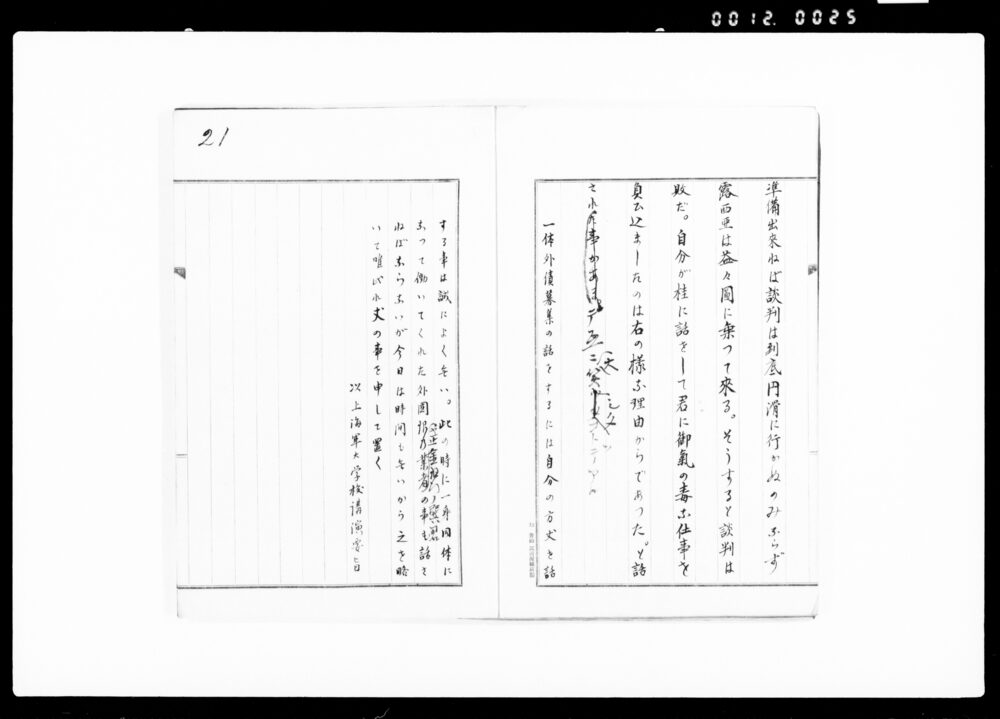 0012. 0025
準備出来ねば談判は到底円滑に行かぬのみならず
露西亜は益々図に乗つて来る。そうすると談判は
敗だ。自分が桂に話をして君に御氣の毒な仕事を
負ひ込ましたのは右の様な理由からであつた。と話
一体外債募集の話をするには自分の方丈を話
21
する事は誠によくない。此の時に一身同体に
なつて働いてくれた外国の事も話さ
ねばならないが今日は時間も無いから之を略
いて唯これ丈の事を申して置く
以上海軍大学校講演要旨